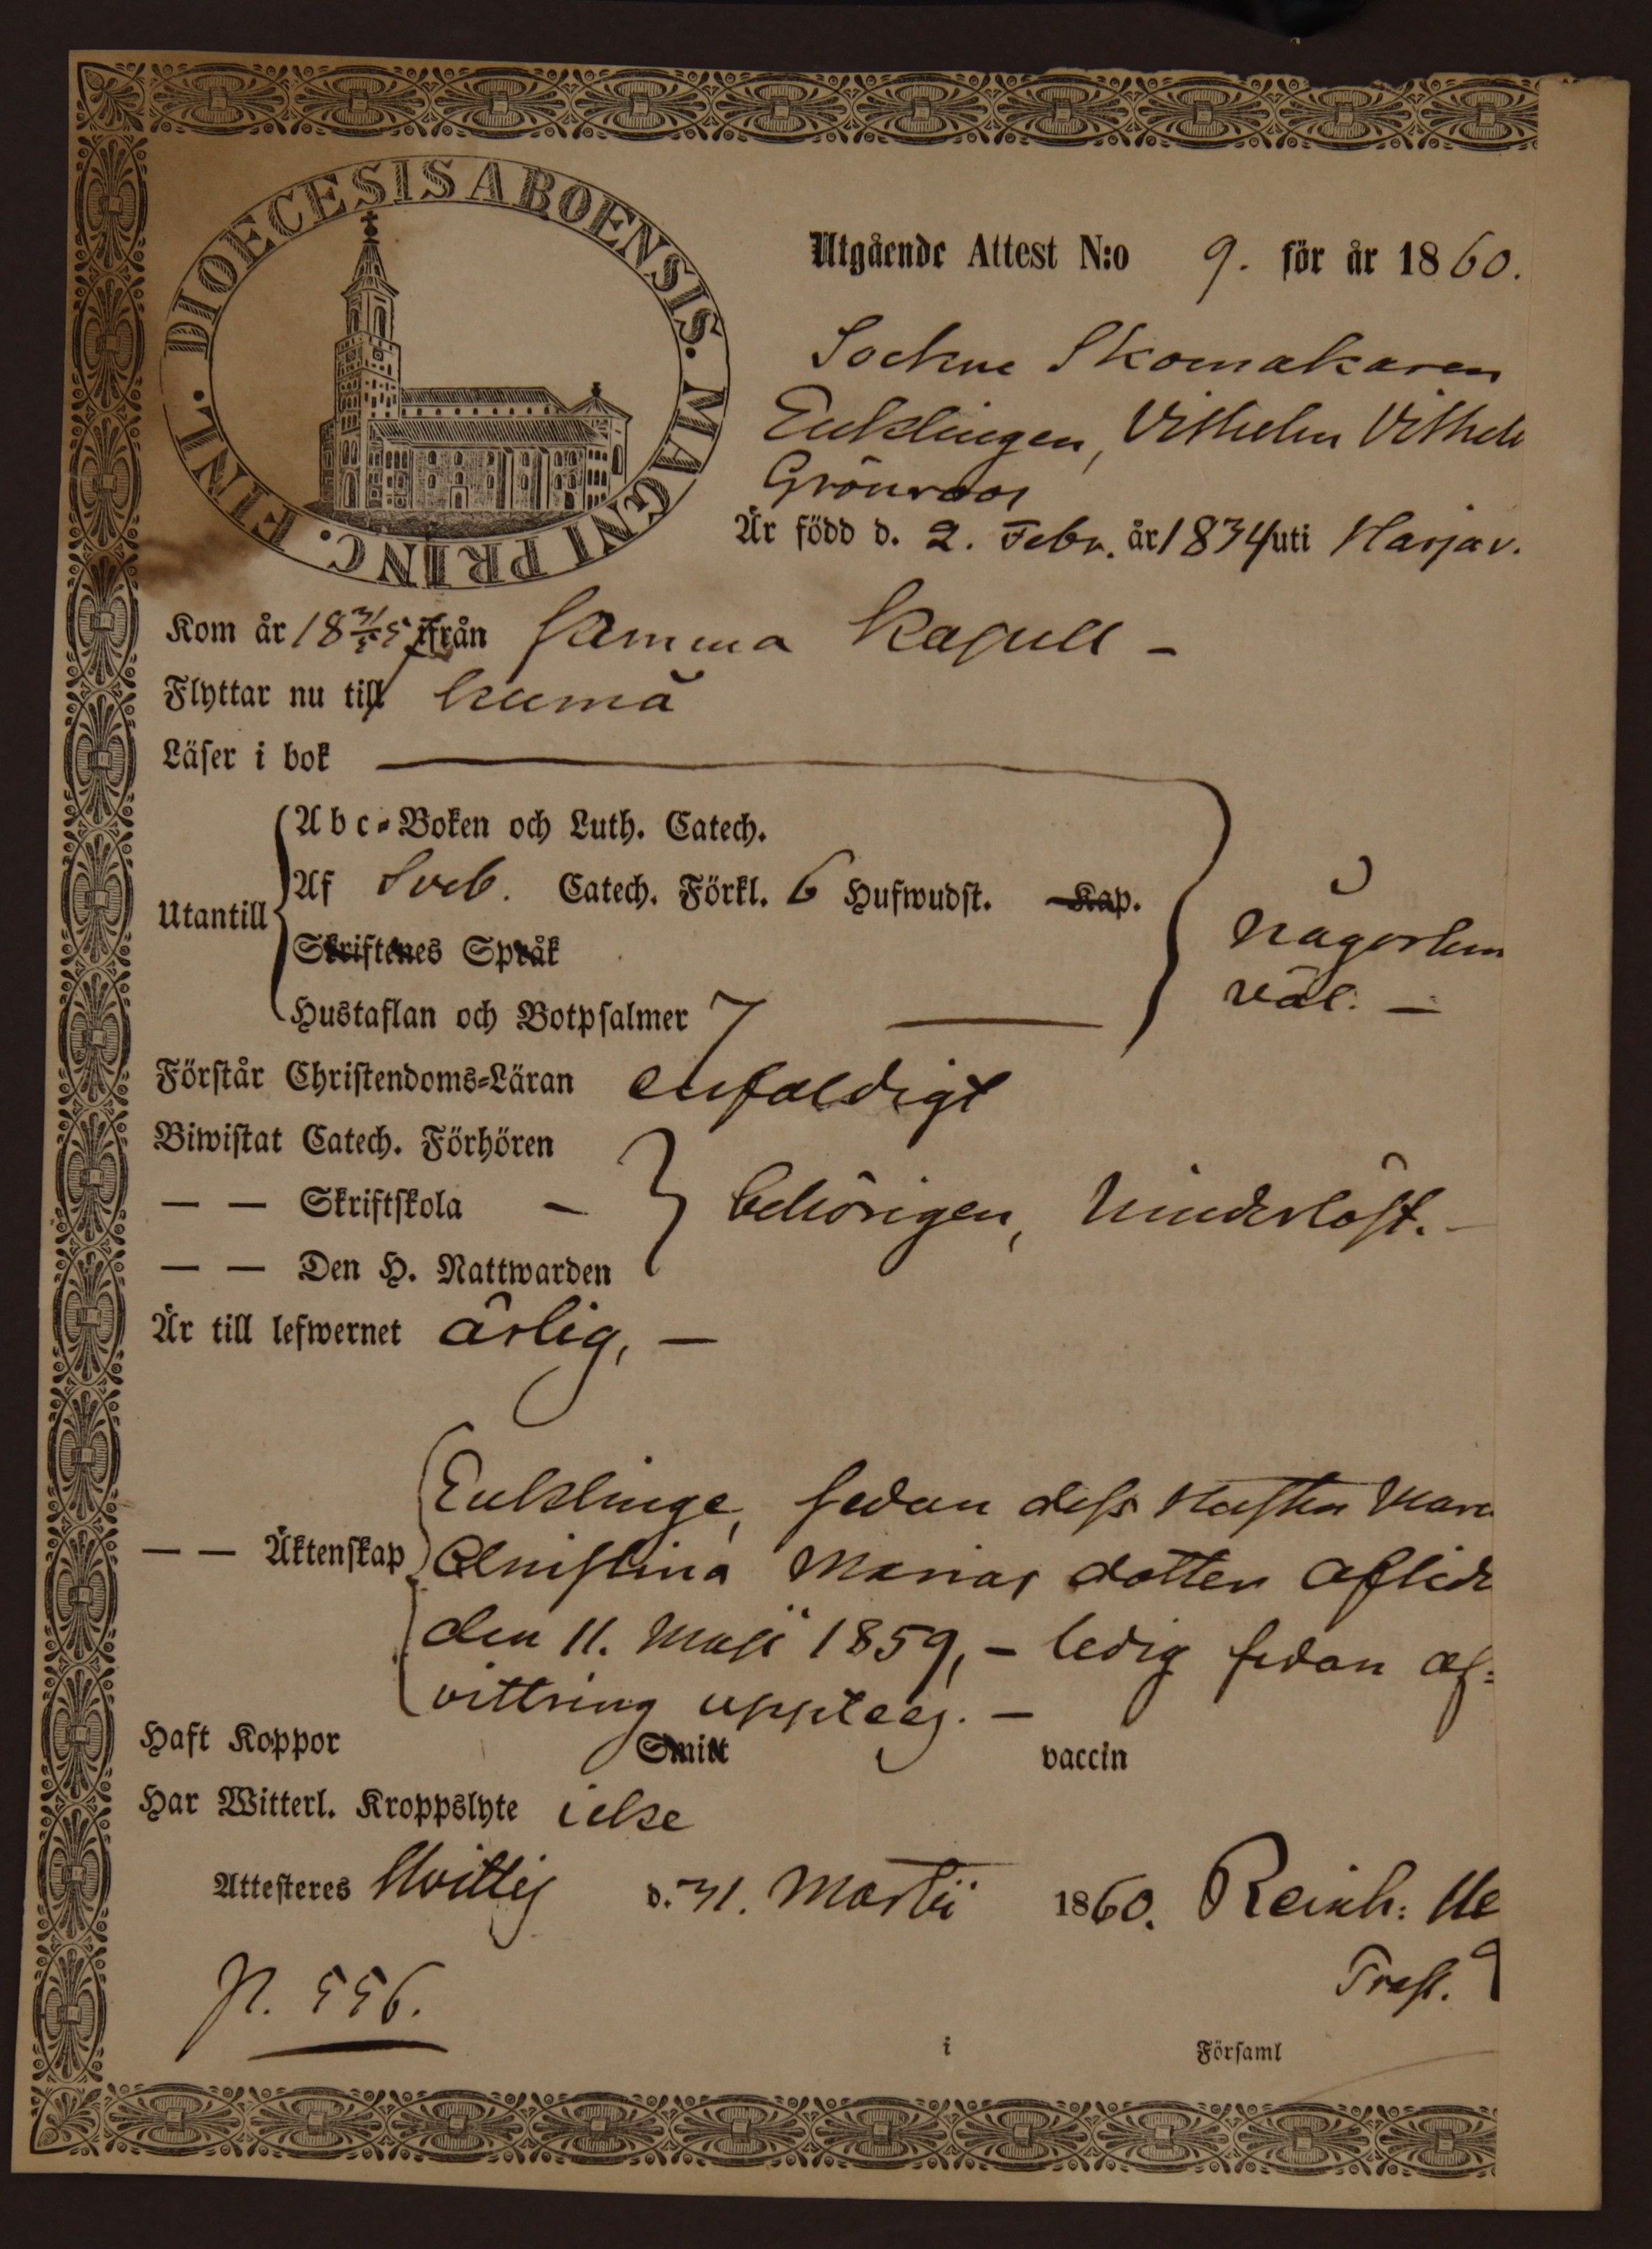 DIOECESIS ABOENSIS. MAGNI PRINC. FINL.
Utgående Attest N:o 9. för år 1860.
Sockne Skomakaren
Enklingen, Vilhelm Vilhelm
Grönroos
Är född d. 2. Febr. år 1834 uti Harjav.
Kom år 18 ifrån samma Kapell –
Flyttar nu till Kumå
Läser i bok
Abc-Boken och Luth. Catech.
Utantill Af Sveb. Catech. Förkl. 6 Hufwudst. Kap.
Skriftenes Språk
någorlun
väl. –
Hustaflan och Botpsalmer 7
Förstår Christendoms-Läran enfaldigt
Biwistat Catech. Förhören
— — Skriftskola – behörigen, hinderlöst. –
— — Den H. Nattwarden
Är till lefwernet ärlig, –
Enklinge, sedan dess Hustru Maria
— — Äktenskap Christina Mariasdotter aflid
den 11. Maji 1859, – ledig sedan af=
vittring upptees. –
Haft Koppor Smitt vaccin
Har Witterl. Kroppslyte icke
Attesteres Hvittis d. 31. Martii 1860. Reinh: He
Prost.
p. 556.
i Församl